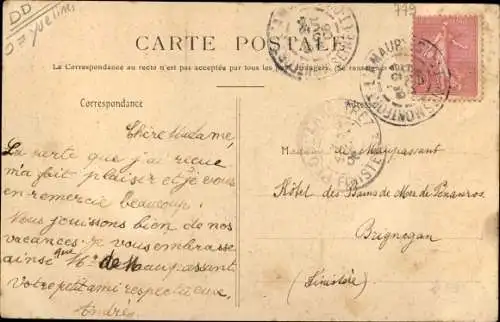 DD
07 yvelines
779
CARTE POSTALE
La Correspondance au recto n'est pas acceptée par tous les pays étrangers. (Se renseigner
Correspondance
Adresse
Chère Madame,
La carte que j'ai reçue
m'a fait plaisir et je vous
en remercie beaucoup.
Vous jouissons bien de nos
vacances. Je vous embrasse
ainsi que Mr de Maupassant
Votre petit ami respectueux,
André
Madame de Maupassant
Hôtel des Bains de Mer de
Brignogan
(Finistère)